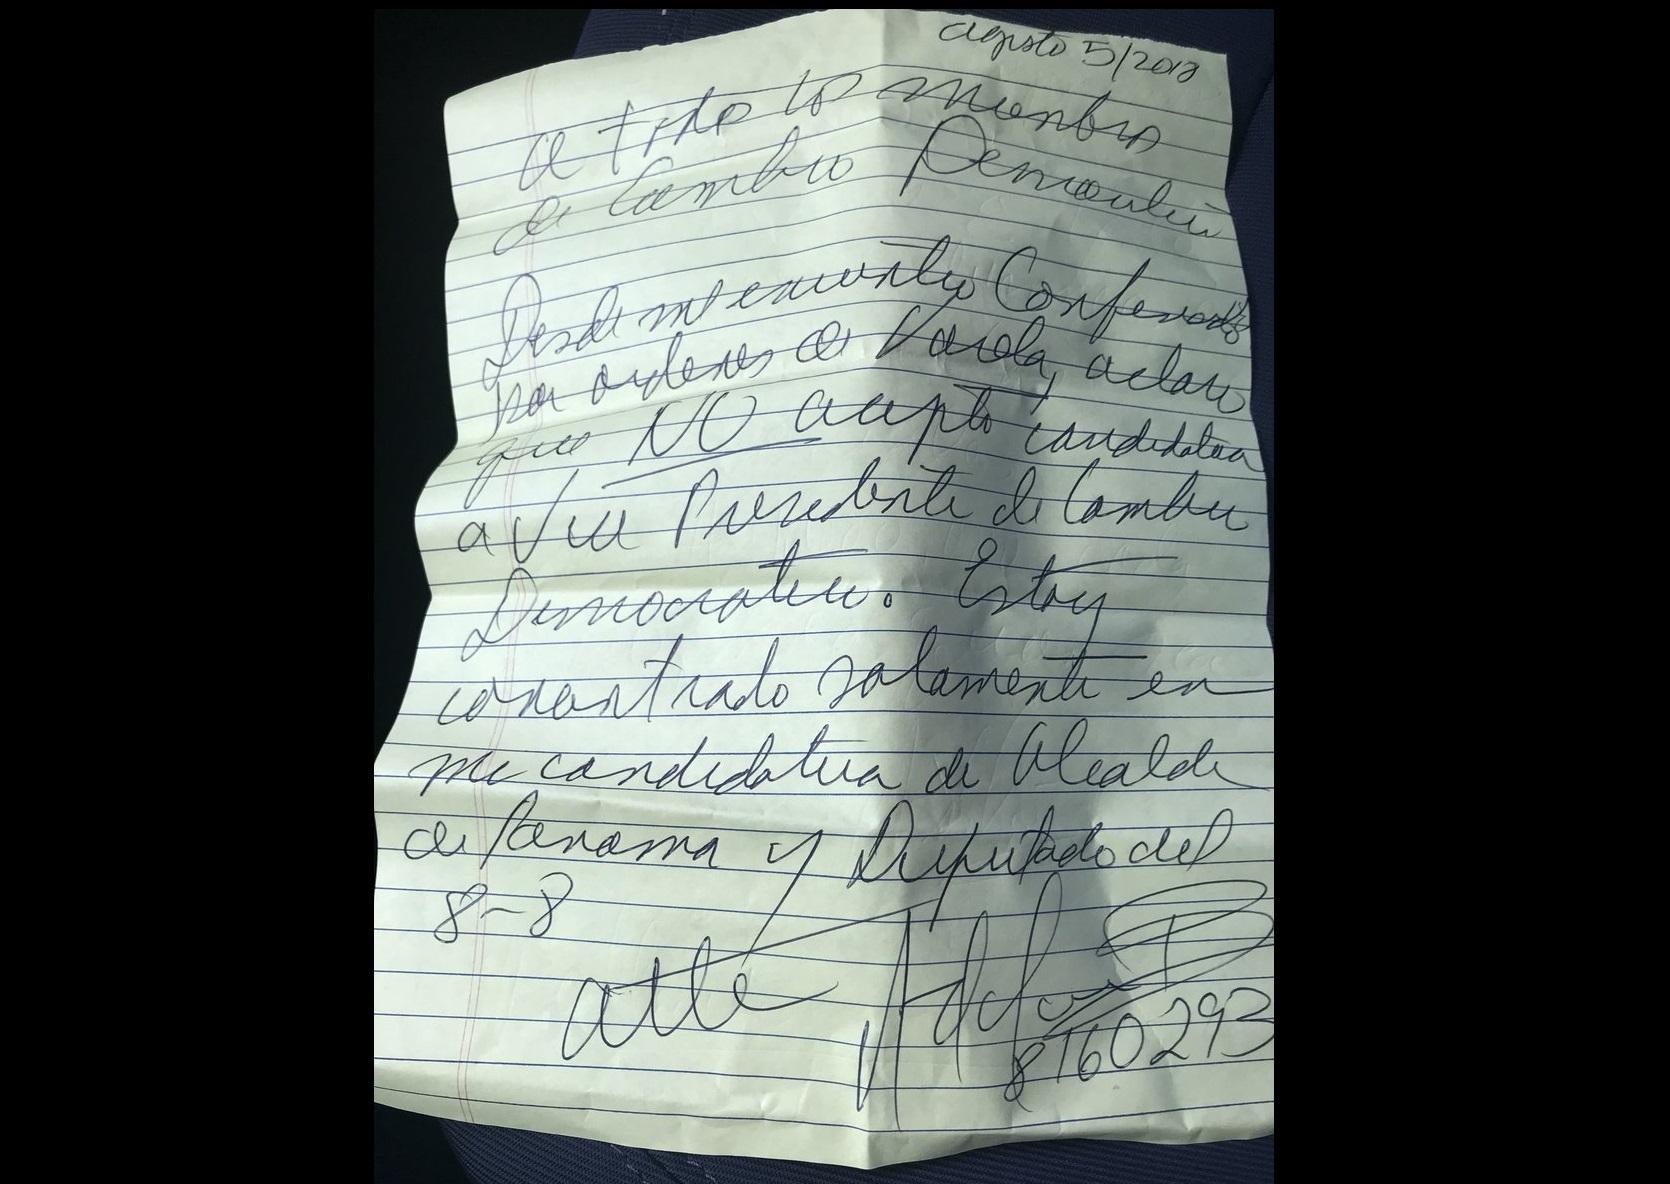 agosto 5/2018
a todo los miembros
de Cambio Democratico
Desde mi encuentro Confinado
por ordenes de Varela, aclaro
que NO acepto candidatura
a Vice Presidente de Cambio
Democratico. Estoy
concentrado solamente en
mi candidatura de Alcalde
de Panama y Diputado del
8-8
atte
8160293